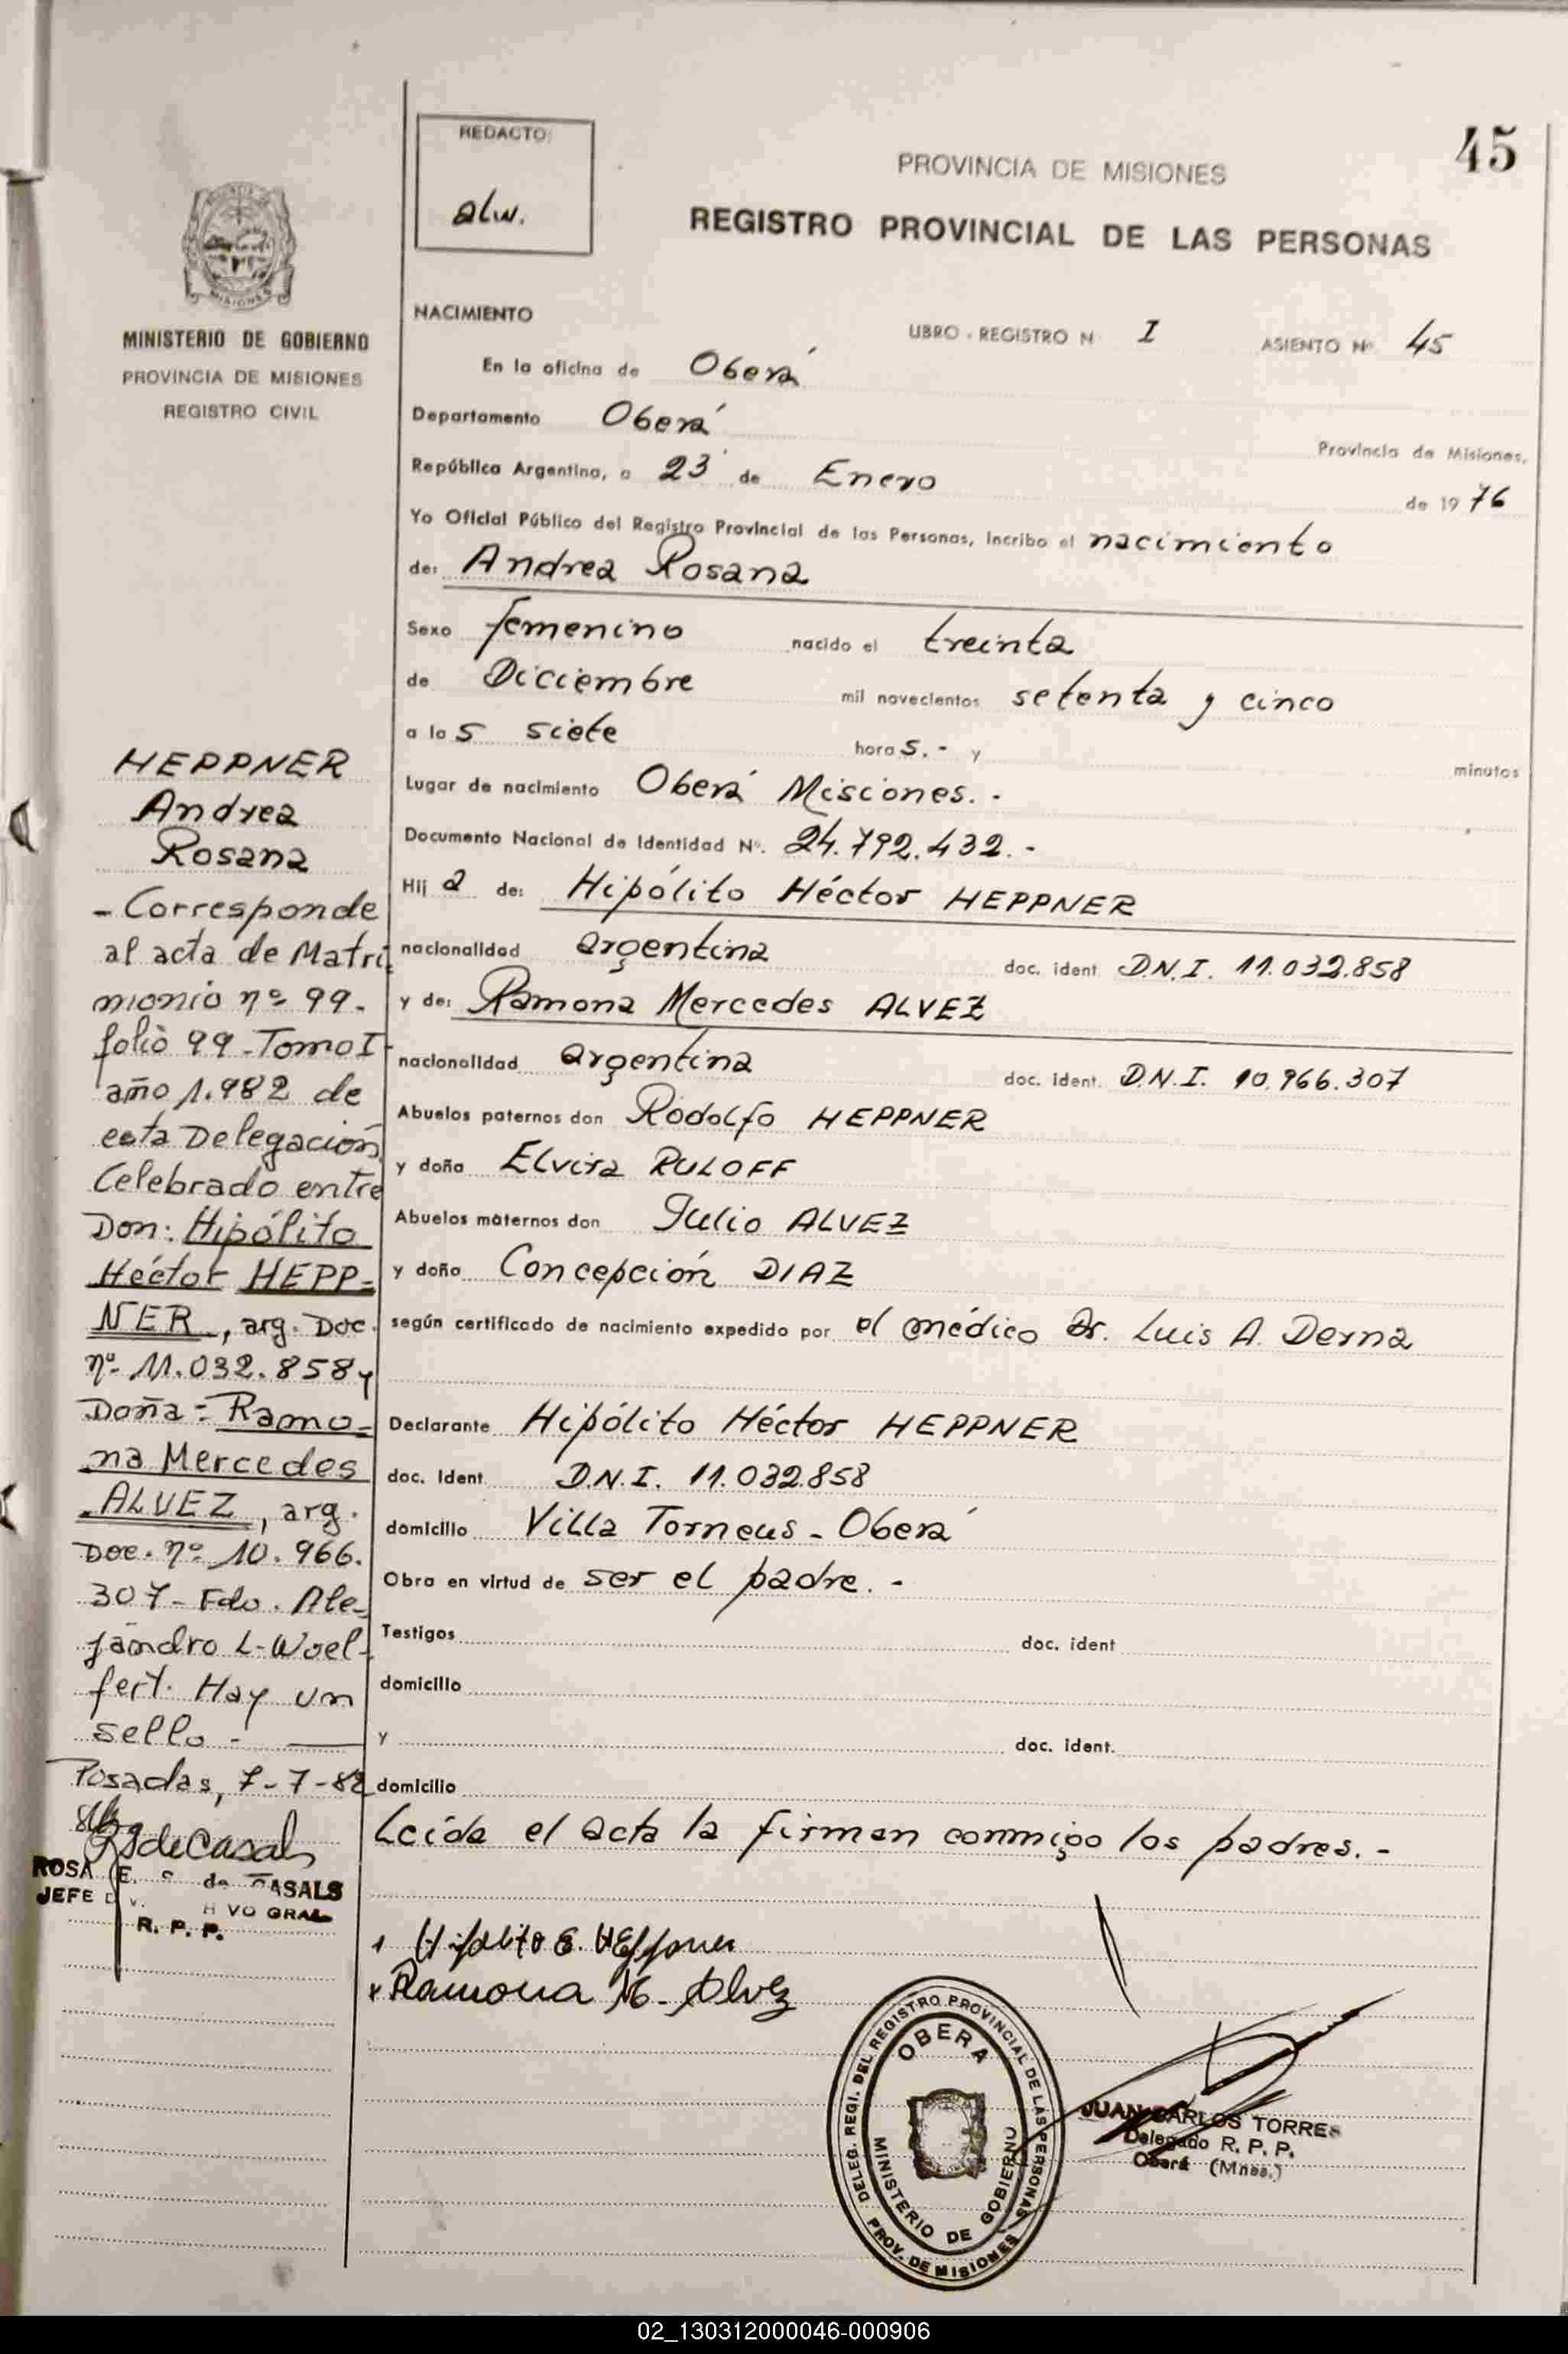 45
REDACTO:
alw.
PROVINCIA DE MISIONES
REGISTRO PROVINCIAL DE LAS PERSONAS
MISIONES
MINISTERIO DE GOBIERNO
PROVINCIA DE MISIONES
REGISTRO CIVIL
NACIMIENTO
LIBRO - REGISTRO N I ASIENTO Nº 45
En la oficina de Oberá
Departamento Oberá Provincia de Misiones,
República Argentina, a 23 de Enero de 1976
Yo Oficial Público del Registro Provincial de las Personas, incribo el nacimiento
de: Andrea Rosana
Sexo femenino nacido el treinta
de Diciembre mil novecientos setenta y cinco
a las siete horas.- y minutos
Lugar de nacimiento Oberá Misiones.-
Documento Nacional de Identidad Nº. 24.792.432.-
Hija de: Hipólito Héctor HEPPNER
nacionalidad argentina doc. ident. D.N.I. 11.032.858
y de: Ramona Mercedes ALVEZ
nacionalidad argentina doc. ident. D.N.I. 10.966.307
Abuelos paternos don Rodolfo HEPPNER
y doña Elvira RULOFF
Abuelos maternos don Julio ALVEZ
y doña Concepción DIAZ
según certificado de nacimiento expedido por el médico Dr. Luis A. Derna
Declarante Hipólito Héctor HEPPNER
doc. Ident. D.N.I. 11.032.858
domicilio Villa Torneus - Oberá
Obra en virtud de ser el padre.-
Testigos doc. ident
domicilio
y doc. ident.
domicilio
Leída el acta la firman conmigo los padres.-
Ramona M. Alvez
HEPPNER
Andrea
Rosana
- Corresponde
al acta de Matri
monio nº 99-
folio 99-Tomo I-
año 1.982 de
esta Delegación
Celebrado entre
Don: Hipólito
Héctor HEPP=
NER, arg. Doc.
nº 11.032.858 y
Doña= Ramo=
na Mercedes
ALVEZ, arg.
Doc. nº 10.966.
307- Fdo. Ale-
jandro L-Woel-
fert. Hay un
sello -
Posadas, 7-7-82
ROSA E. de CASALS
JEFE
R. P. P.
DELEG. REGI. DEL REGISTRO PROVINCIAL DE LAS PERSONAS
OBERA
MINISTERIO DE GOBIERNO
PROV. DE MISIONES
JUAN CARLOS TORRES
Delegado R. P. P.
Oberá (Mnes.)
02_130312000046-000906